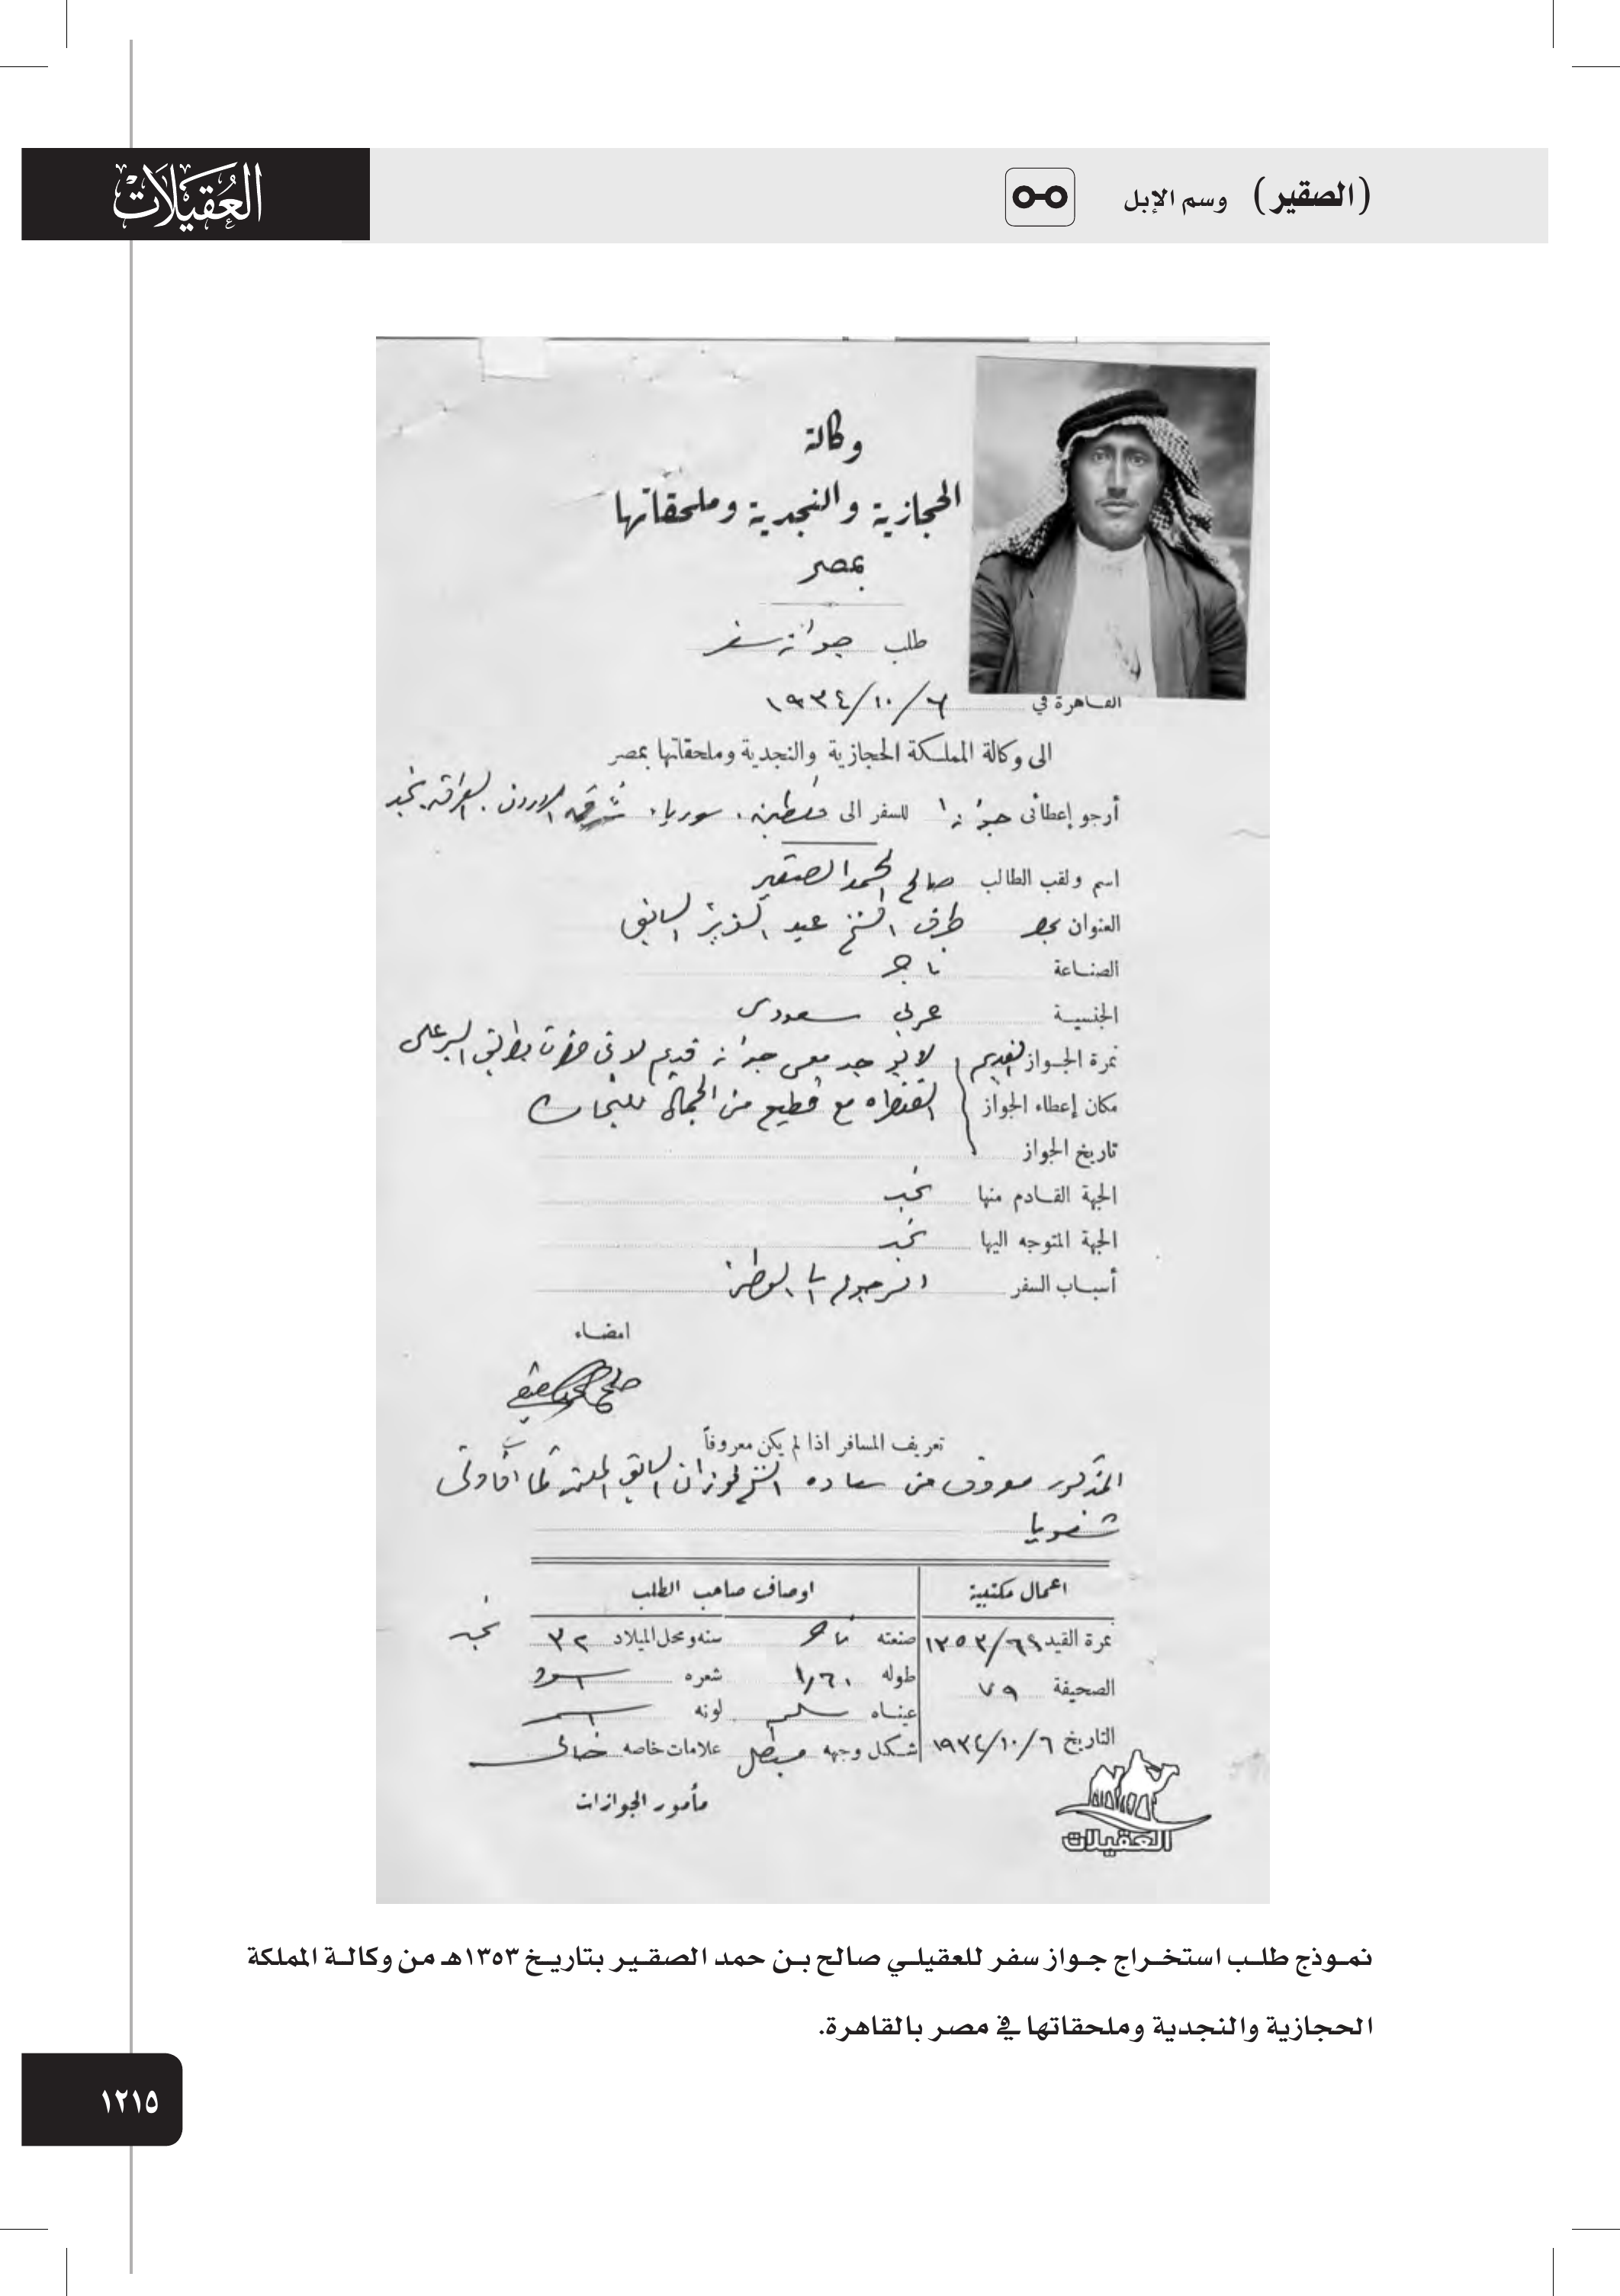 (الصقير) وسم الإبل
العُقيلات
وكالة
الحجازية والنجدية وملحقاتها
بمصر
طلب جواز سفر
القاهرة في ٦/١٠/١٩٣٤
الى وكالة المملكة الحجازية والنجدية وملحقاتها بمصر
أرجو إعطائى جوازا للسفر الى فلسطين، سوريا، شرق الاردن، العراق، نجد
اسم ولقب الطالب صالح الحمد الصقير
العنوان بمصر طرف الشيخ عبد العزيز السابق
الصناعة تاجر
الجنسية عربى سعودى
نمرة الجواز القديم لا يوجد معى جواز قديم لانى حضرت بطريق البر على
مكان إعطاء الجواز القنطره مع قطيع من الجمال للتجارة
تاريخ الجواز
الجهة القادم منها نجد
الجهة المتوجه اليها نجد
أسباب السفر الرجوع الى الوطن
امضاء
صالح الحمد الصقير
تعريف المسافر اذا لم يكن معروفاً
المذكور معروف من سعاده الشيخ فوزان السابق المعتمد كما افادنى
شفويا
اعمال مكتبية اوصاف صاحب الطلب
نمرة القيد ١٣٥٣/٦٩ صنعته تاجر سنه ومحل الميلاد ٣٢ نجد
الصحيفة ٧٩ طوله ١,٦٠ شعره اسود
عيناه لونه اسمر
التاريخ ٦/١٠/١٩٣٤ شكل وجهه مستطيل علامات خاصه
مأمور الجوازات
العقيلات
نموذج طلب استخراج جواز سفر للعقيلي صالح بن حمد الصقير بتاريخ ١٣٥٣هـ من وكالة المملكة
الحجازية والنجدية وملحقاتها في مصر بالقاهرة.
١٢١٥